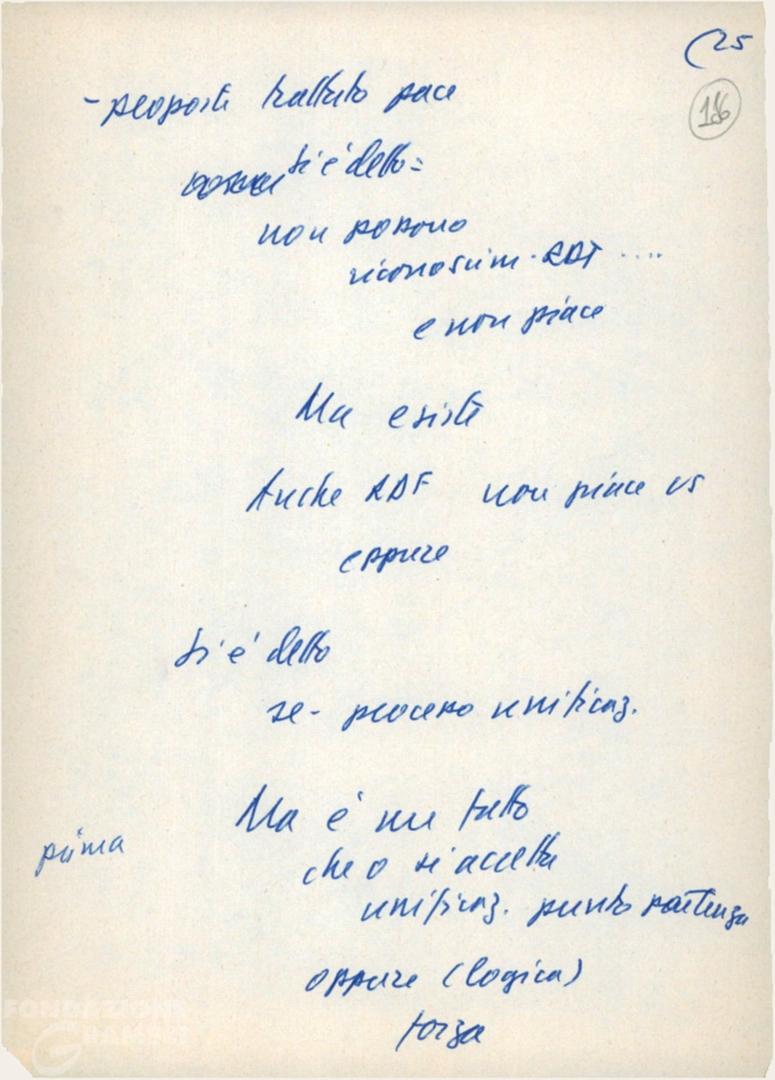 (25
186
- proposte trattato pace
si è detto =
non possono
riconoscim. RDT ....
e non piace
Ma esiste
Anche RDF non piace us
eppure
si è detto
se - processo unificaz.
Ma è un fatto
prima
che o si accetta
unificaz. punto partenza
oppure (logica)
forza
FONDAZIONE
GRAMSCI